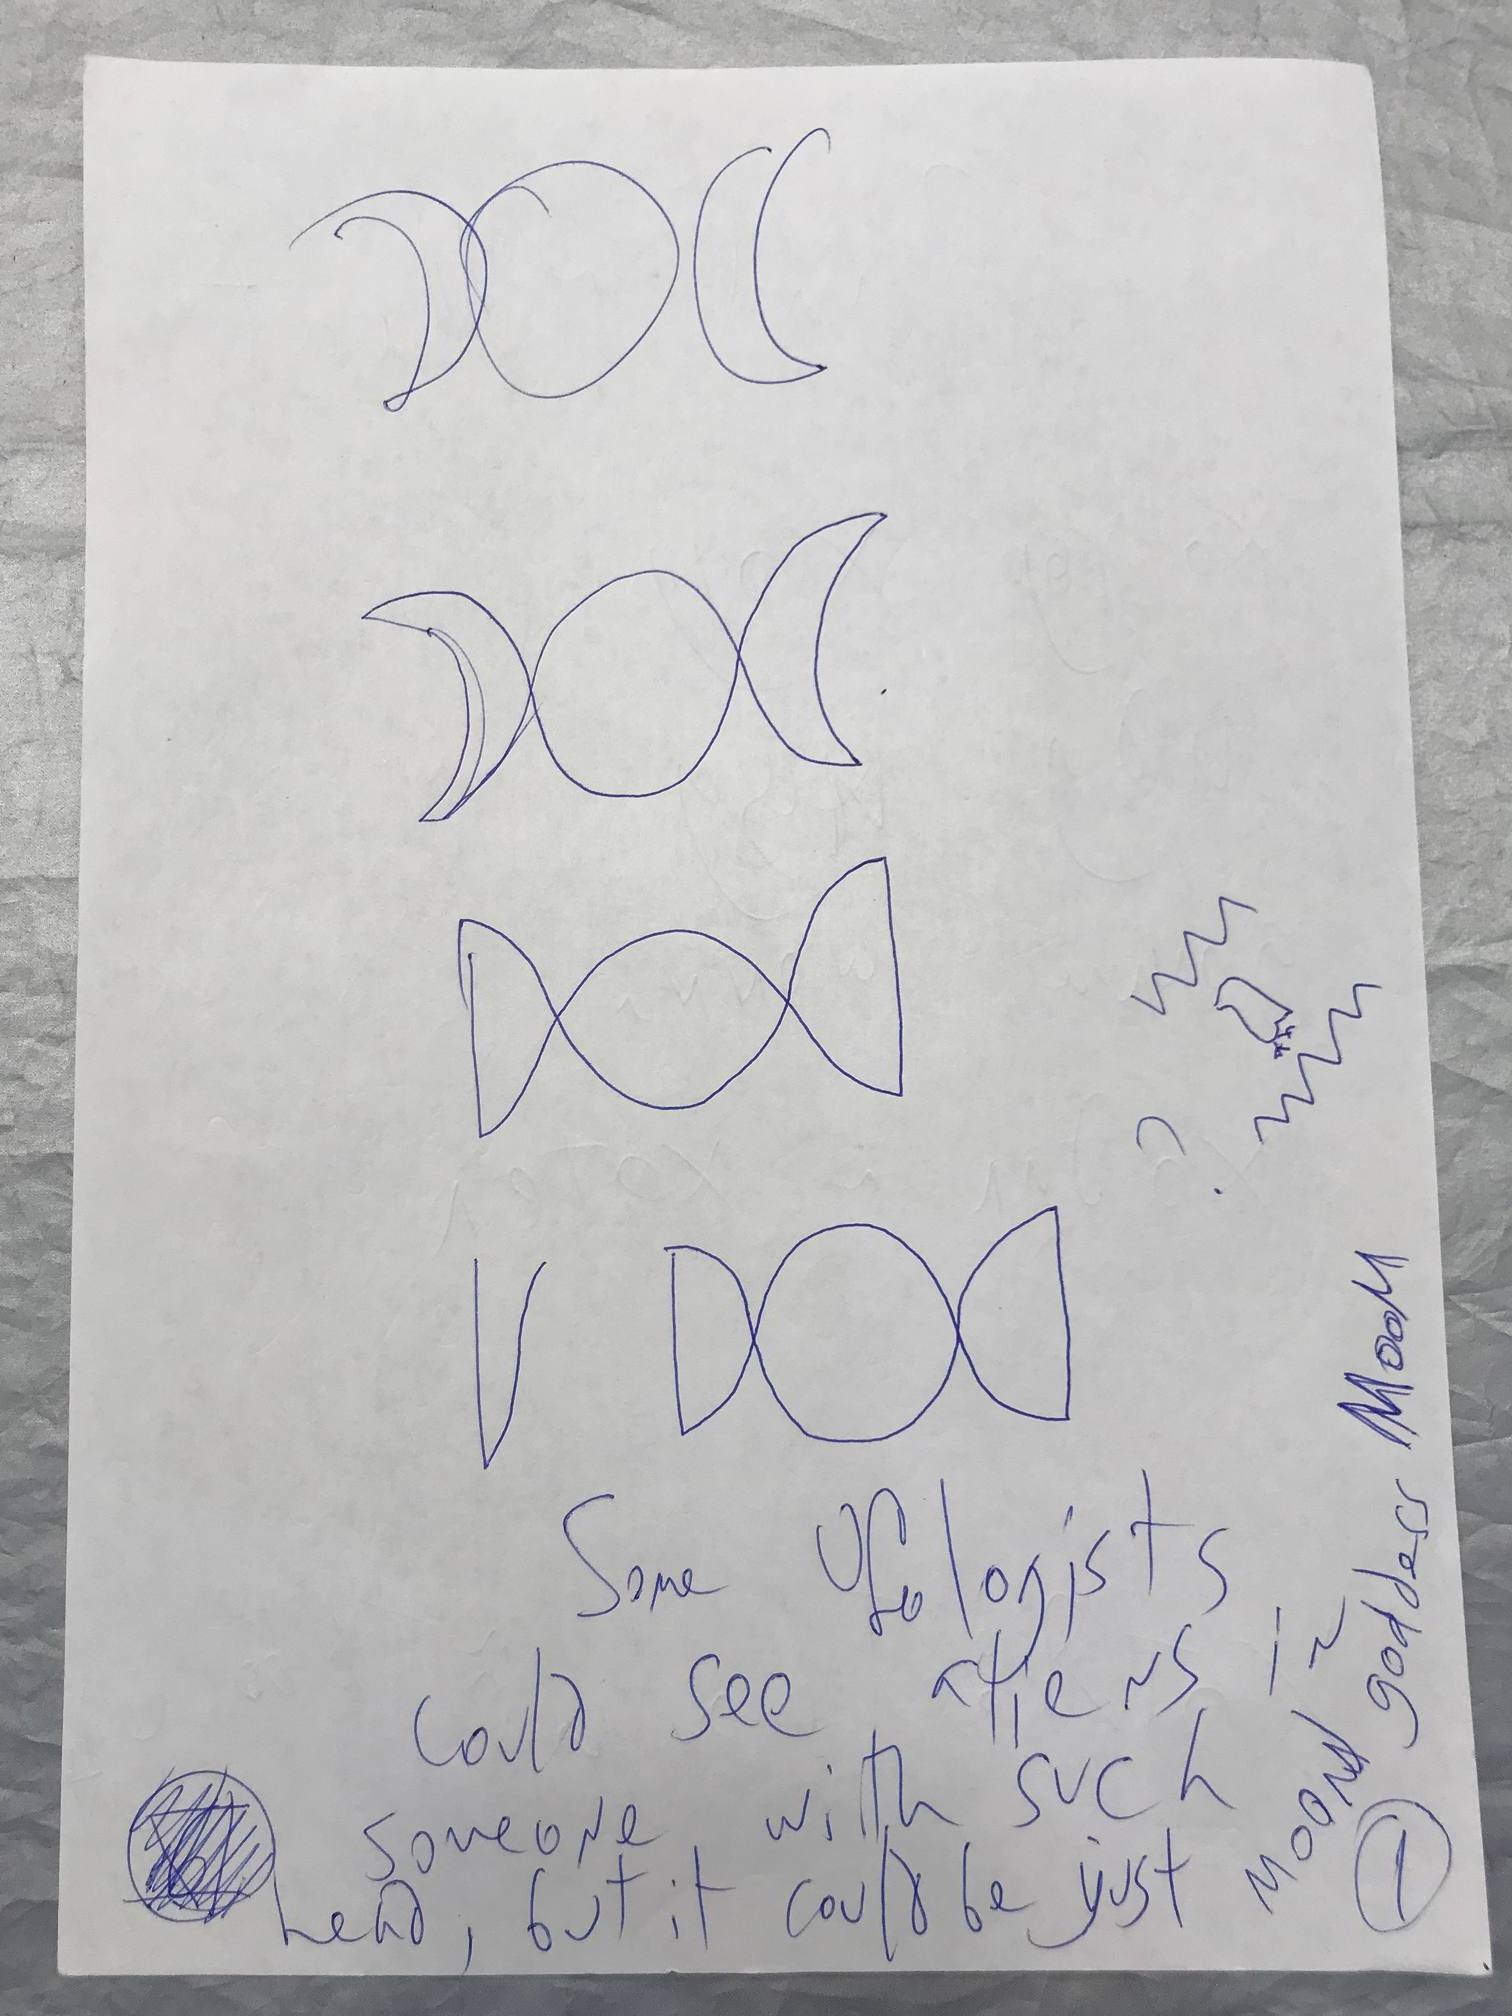 Some Ufologists
could see aliens in
someone with such
head, but it could be just
Moon goddess MooM
1
?